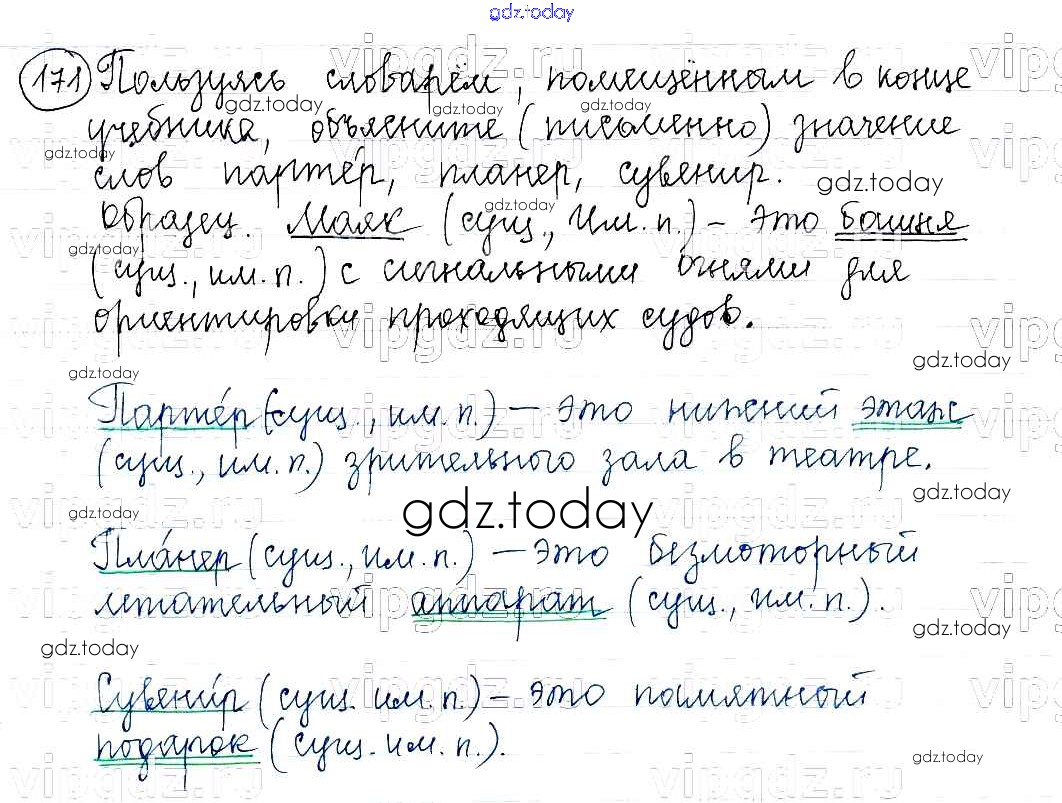 gdz.today
171 Пользуясь словарём, помещённым в конце
учебника, объясните (письменно) значение
слов партéр, планер, сувенир.
Образец. Маяк (сущ., Им. п.) – это башня
(сущ., им. п.) с сигнальными огнями для
ориентировки проходящих судов.
Партéр (сущ., им. п.) – это нижний этаж
(сущ., им. п.) зрительного зала в театре.
gdz.today
Плáнер (сущ., им. п.) – это безмоторный
летательный аппарат (сущ., им. п.).
Сувени́р (сущ. им. п.) – это памятный
подарок (сущ. им. п.).